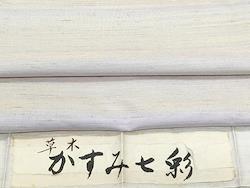 草木
かすみ七彩